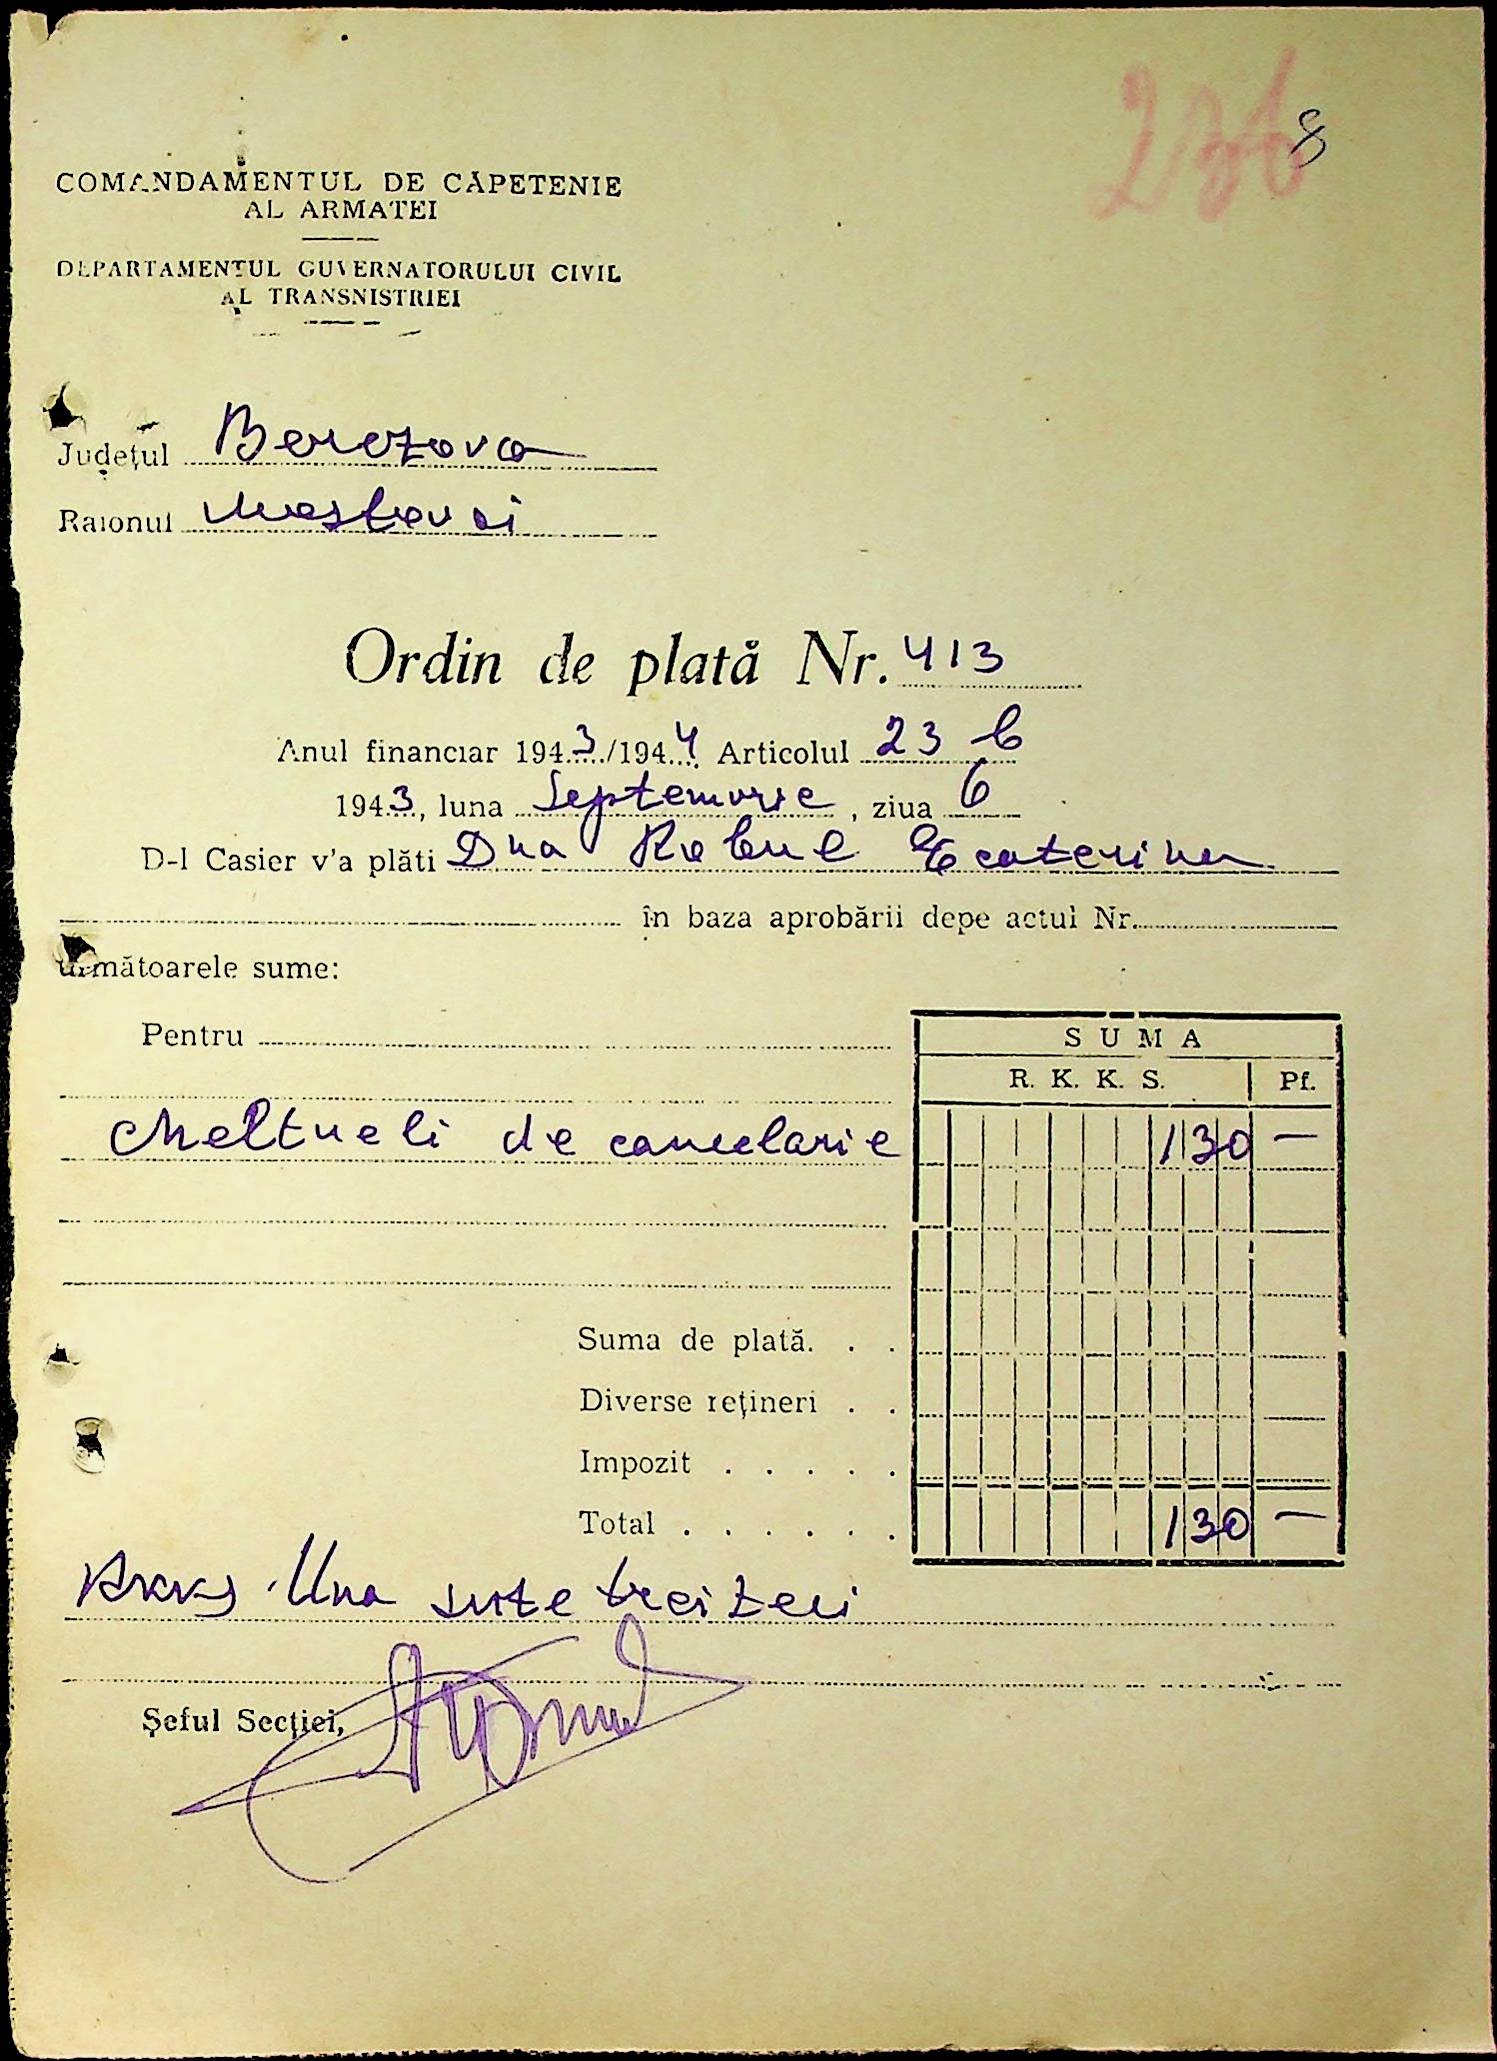 8
COMANDAMENTUL DE CĂPETENIE
AL ARMATEI
DEPARTAMENTUL GUVERNATORULUI CIVIL
AL TRANSNISTRIEI
Județul Berezovca
Raionul Mostovoi
Ordin de plată Nr. 413
Anul financiar 1943/1944 Articolul 23 b
1943, luna Septemvrie, ziua 6
D-l Casier v'a plăti Dna Robul Ecaterina
în baza aprobării depe actul Nr.
următoarele sume:
Pentru
SUMA
R. K. K. S. Pf.
Cheltueli de cancelarie 130 —
Suma de plată. . .
Diverse rețineri . .
Impozit . . . . .
Total . . . . . . 130 —
Rkks Una sute treizeci
Șeful Secției,